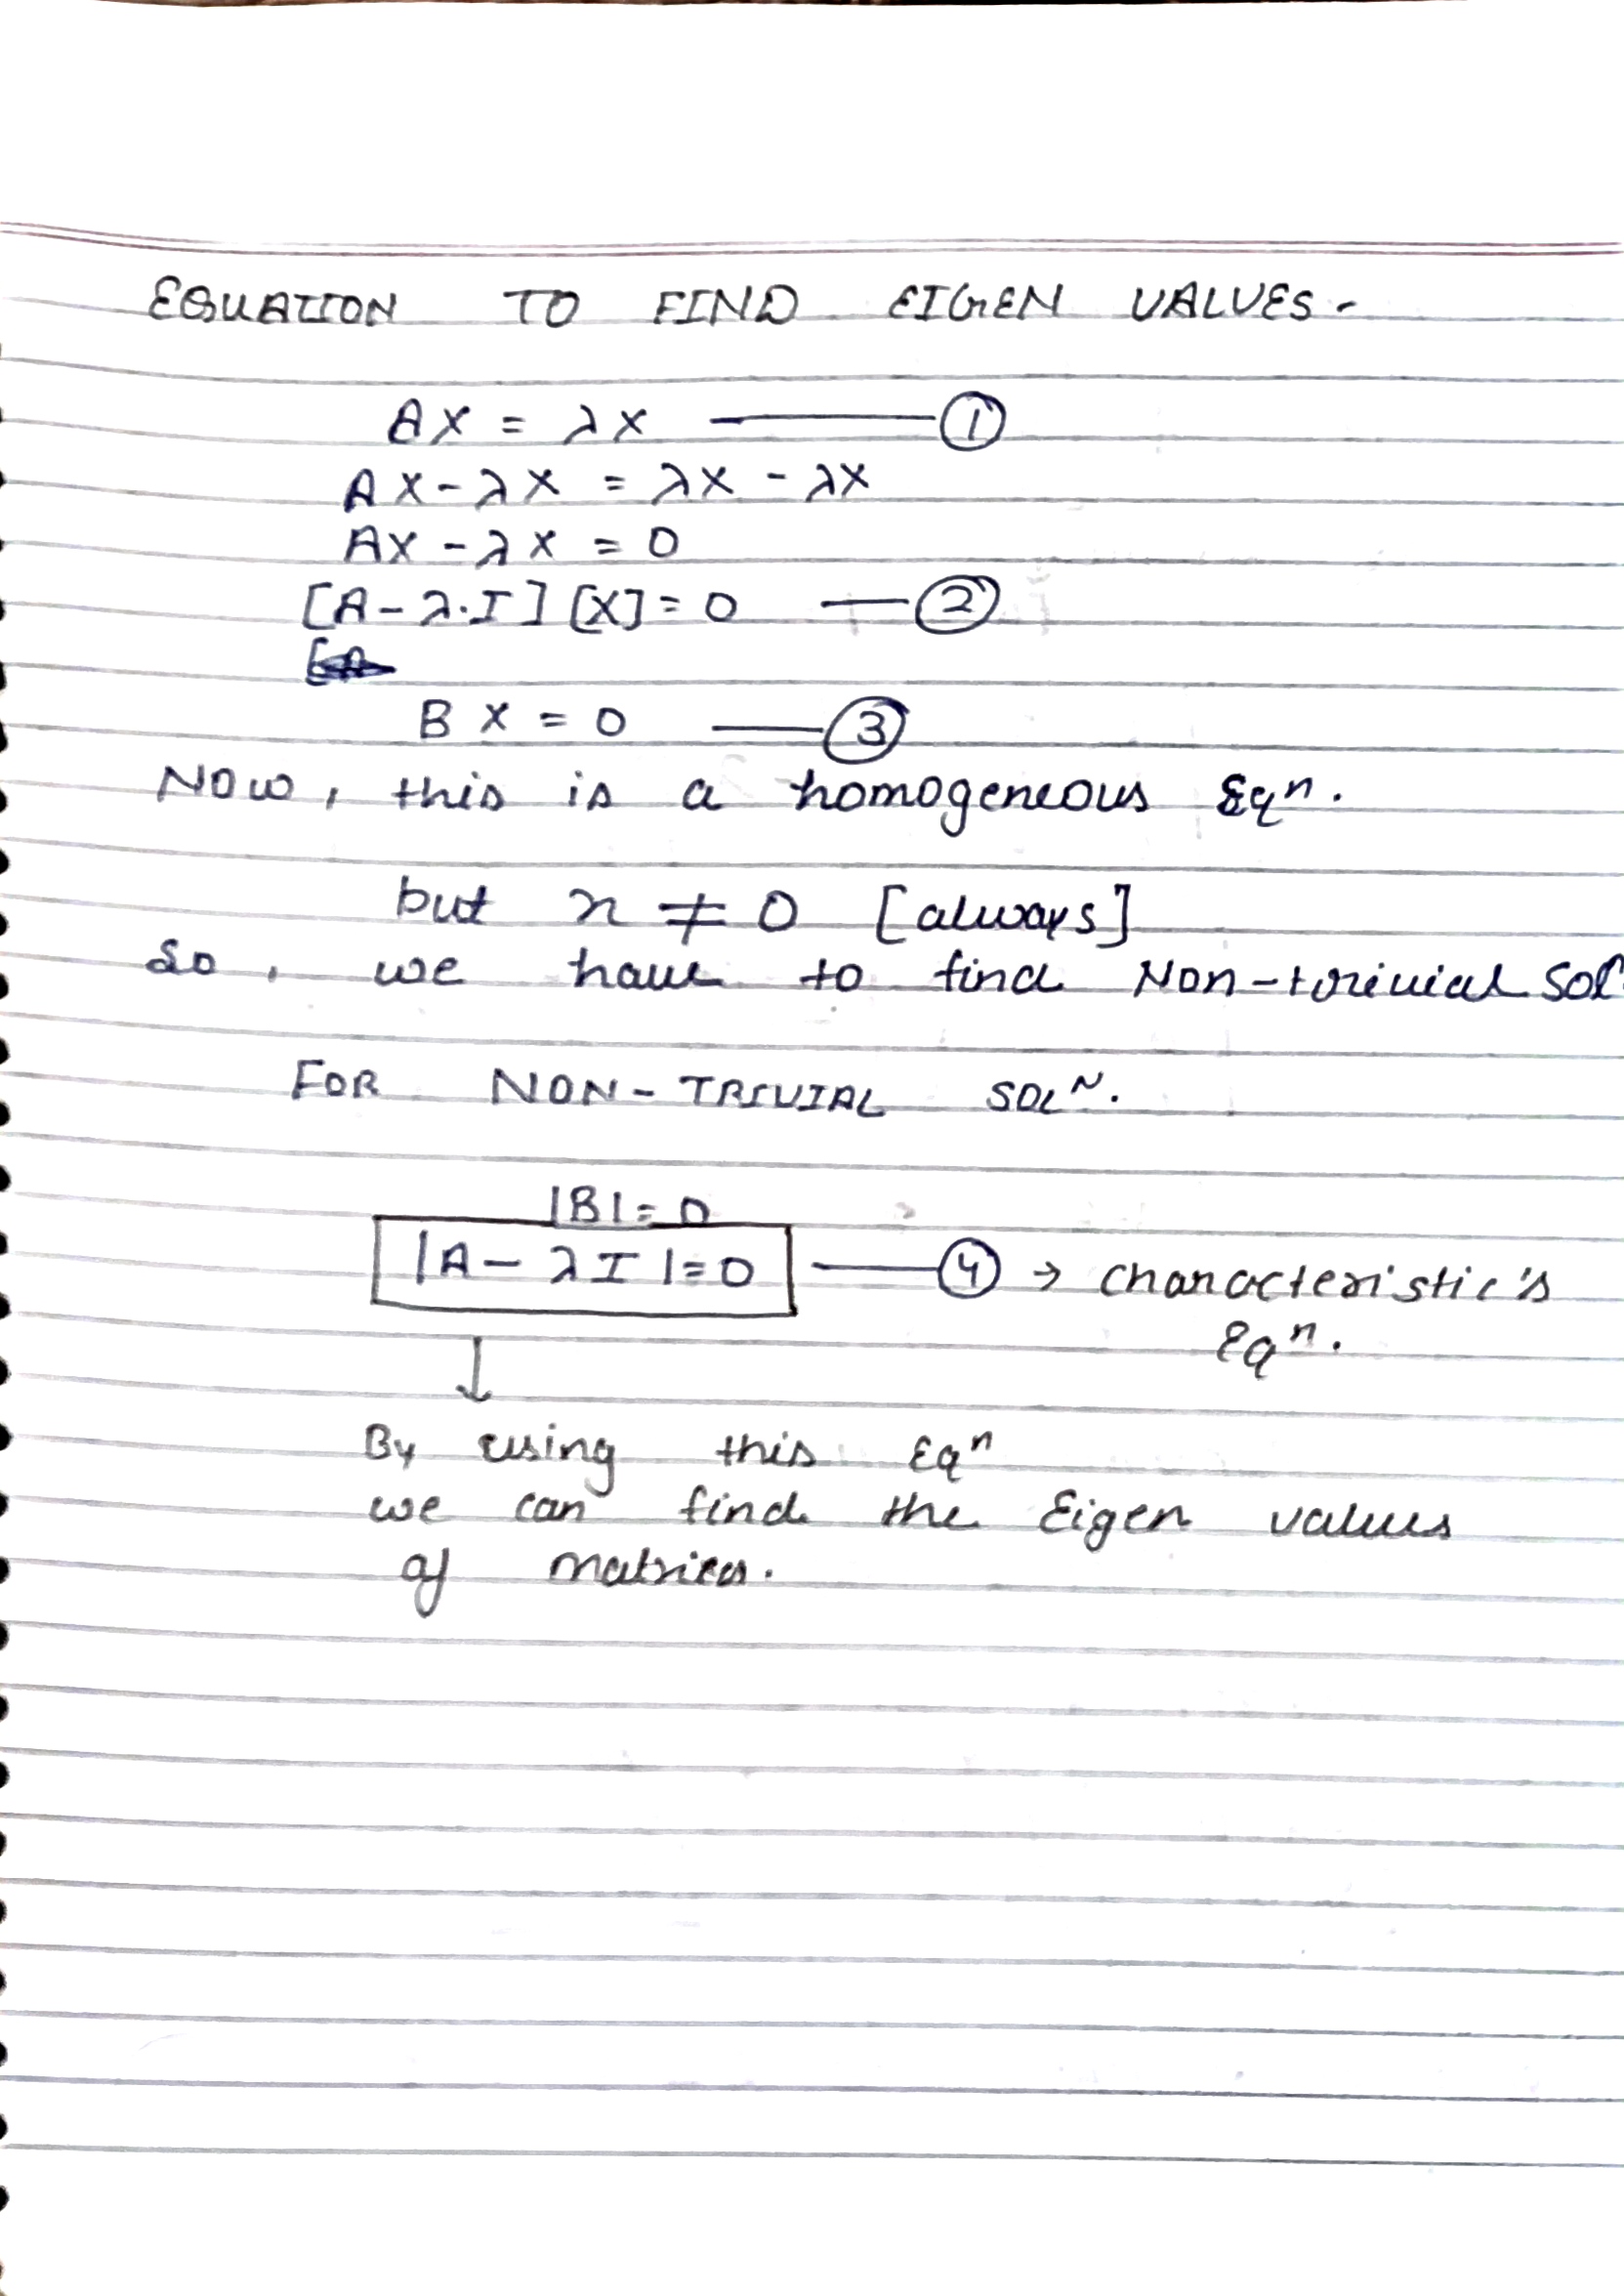 EQUATION TO FIND EIGEN VALUES-
AX = λX ——— ①
AX - λX = λX - λX
AX - λX = 0
[A - λ·I] [X] = 0 — ②
BX = 0 —— ③
NOW, this is a homogeneous Eqn.
but x ≠ 0 [always]
So, we have to find Non-trivial Sol
FOR NON-TRIVIAL SOLN.
|B| = 0
|A - λI| = 0 —— ④ → characteristic's
Eqn.
↓
By using this Eqn
we can find the Eigen values
of matrices.